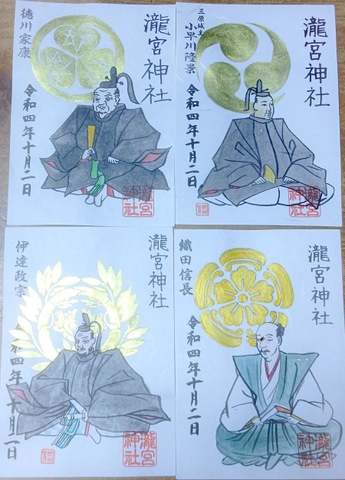 瀧宮神社
徳川家康
令和四年十月二日
瀧宮神社
瀧宮神社
三原城主
小早川隆景
令和四年十月二日
瀧宮神社
瀧宮神社
伊達政宗
令和四年十月二日
瀧宮神社
瀧宮神社
織田信長
令和四年十月二日
瀧宮神社